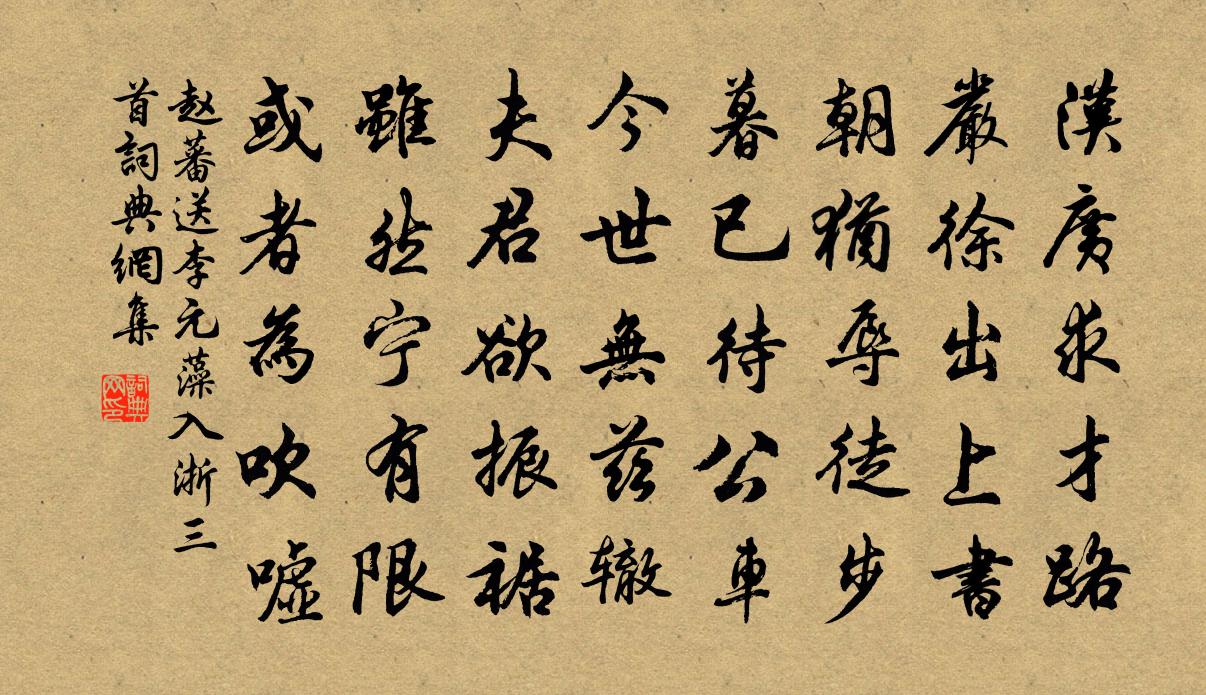 漢廣求才路
嚴徐出上書
朝猶辱徒步
暮已待公車
今世無兹辙
夫君欲振裾
雖然宁有限
或者為吹噓
赵蕃送李元藻入浙三
首詞典網集
詞典网印